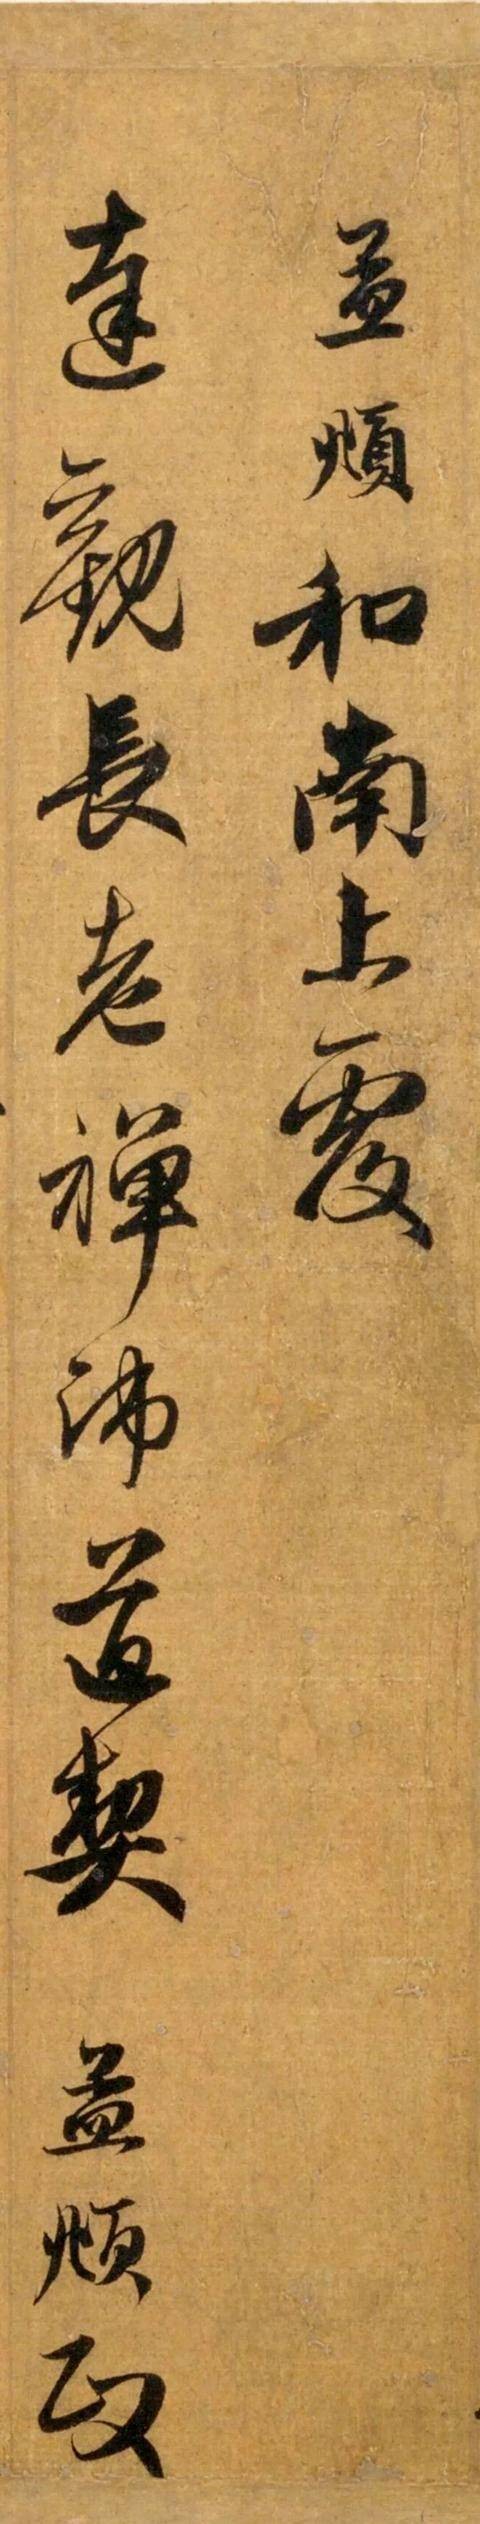 孟頫和南上覆
達觀長老禪師道契　孟頫政